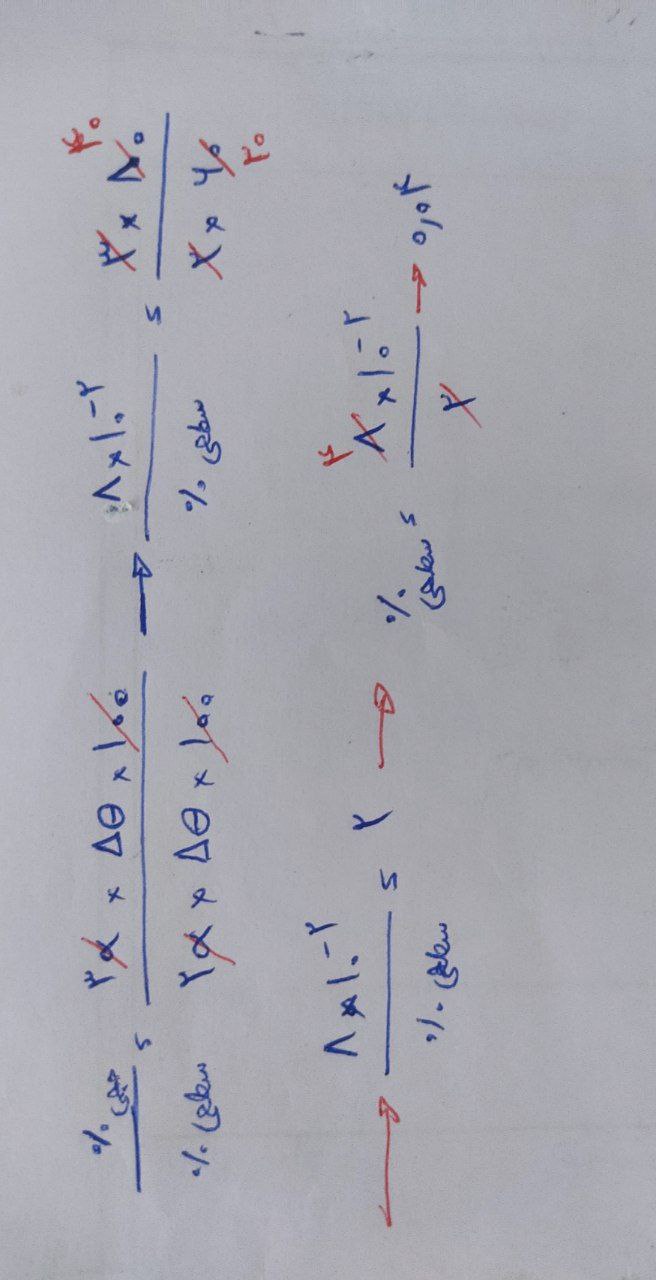 ٪ حجمی / ٪ سطحی = ۳α × Δθ × ۱۰۰ / ۲α × Δθ × ۱۰۰ → ۸×۱۰^-۲ / ٪ سطحی = ۳ × ۸۰ ۴۰ / ۲ × ۶۰ ۲۰
→ ۸×۱۰^-۲ / ٪ سطحی = ۲ → ٪ سطحی = ۴ ۸×۱۰^-۲ / ۲ → ۰,۰۴